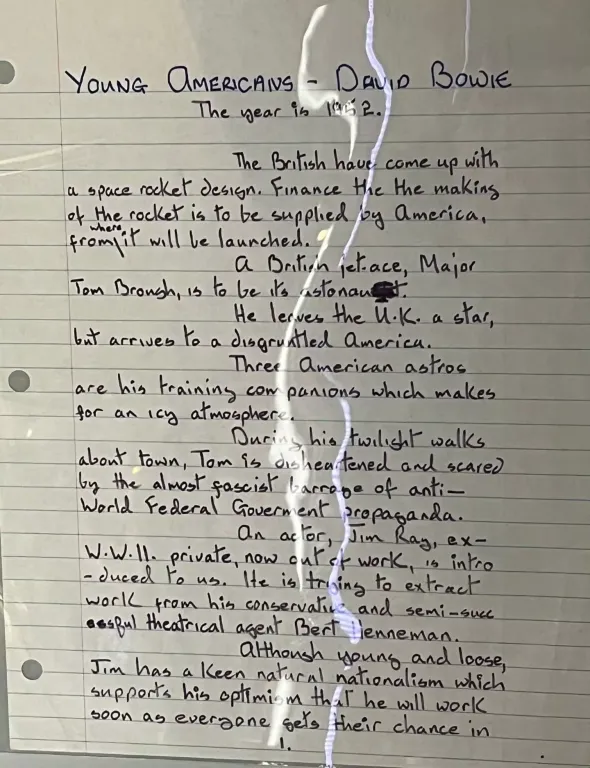 YOUNG AMERICANS - DAVID BOWIE
The year is 1952.
The British have come up with
a space rocket design. Finance the the making
of the rocket is to be supplied by America,
where
from it will be launched.
A British jet-ace, Major
Tom Brough, is to be its astonaut.
He leaves the U.K. a star,
but arrives to a disgruntled America.
Three American astros
are his training companions which makes
for an icy atmosphere.
During his twilight walks
about town, Tom is disheartened and scared
by the almost fascist barrage of anti-
World Federal Goverment propaganda.
An actor, Jim Ray, ex-
W.W.II. private, now out of work, is intro
-duced to us. He is trying to extract
work from his conservative and semi-succ
essful theatrical agent Bert Henneman.
Although young and loose,
Jim has a keen natural nationalism which
supports his optimism that he will work
soon as everyone gets their chance in
1.